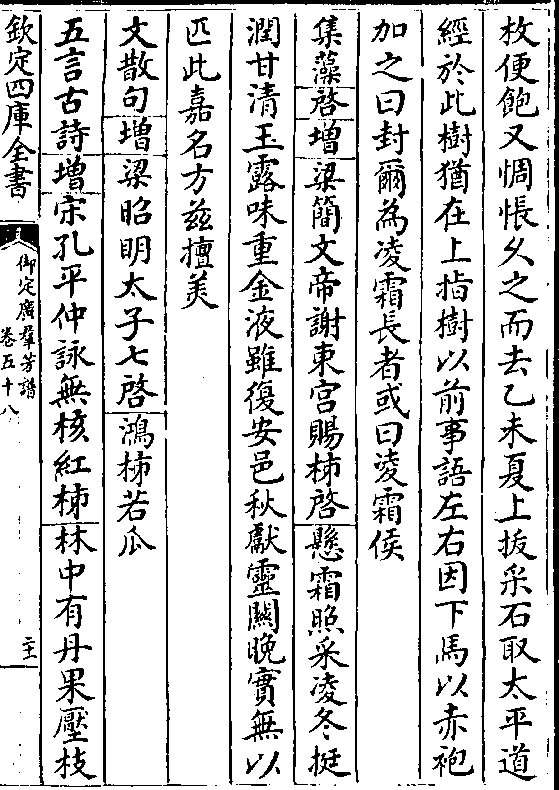 枚便飽又惆悵乆之而去乙未夏上拔采石取太平道
經於此樹猶在上指樹以前事語左右因下馬以赤袍
加之曰封爾為凌霜長者或曰凌霜侯
集藻啓增梁簡文帝謝東宮賜柿啓懸霜照采凌冬挺
潤甘清玉露味重金液雖復安邑秋獻靈闗晚實無以
匹此嘉名方兹擅美
文散句增梁昭明太子七啓鴻柿若瓜
五言古詩增宋孔平仲詠無核紅柿林中有丹果壓枝
欽定四庫全書
御定廣羣芳譜
卷五十八